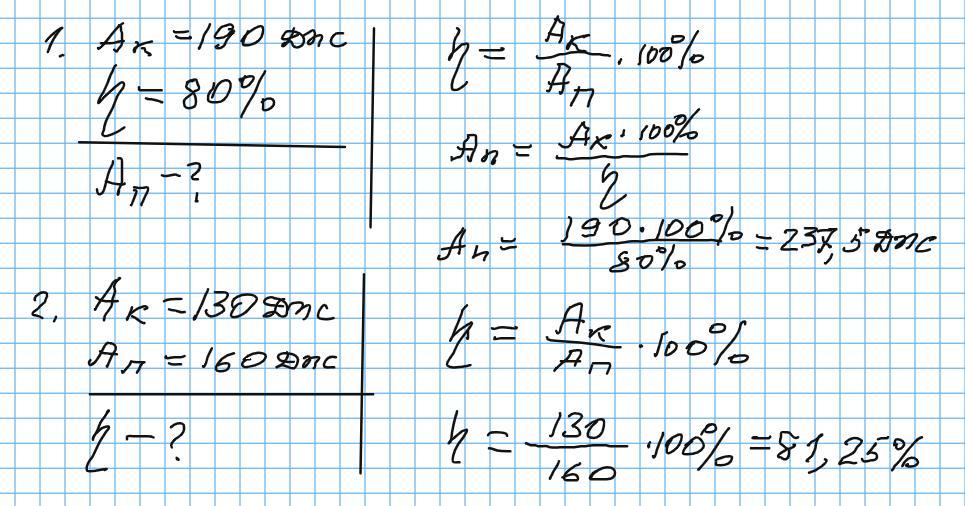 1. Aк = 190 Дж
η = 80%
Aп - ?
η = Aк / Aп · 100%
Aп = Aк · 100% / η
Aп = 190 · 100% / 80% = 237,5 Дж
2. Aк = 130 Дж
Aп = 160 Дж
η - ?
η = Aк / Aп · 100%
η = 130 / 160 · 100% = 81,25%